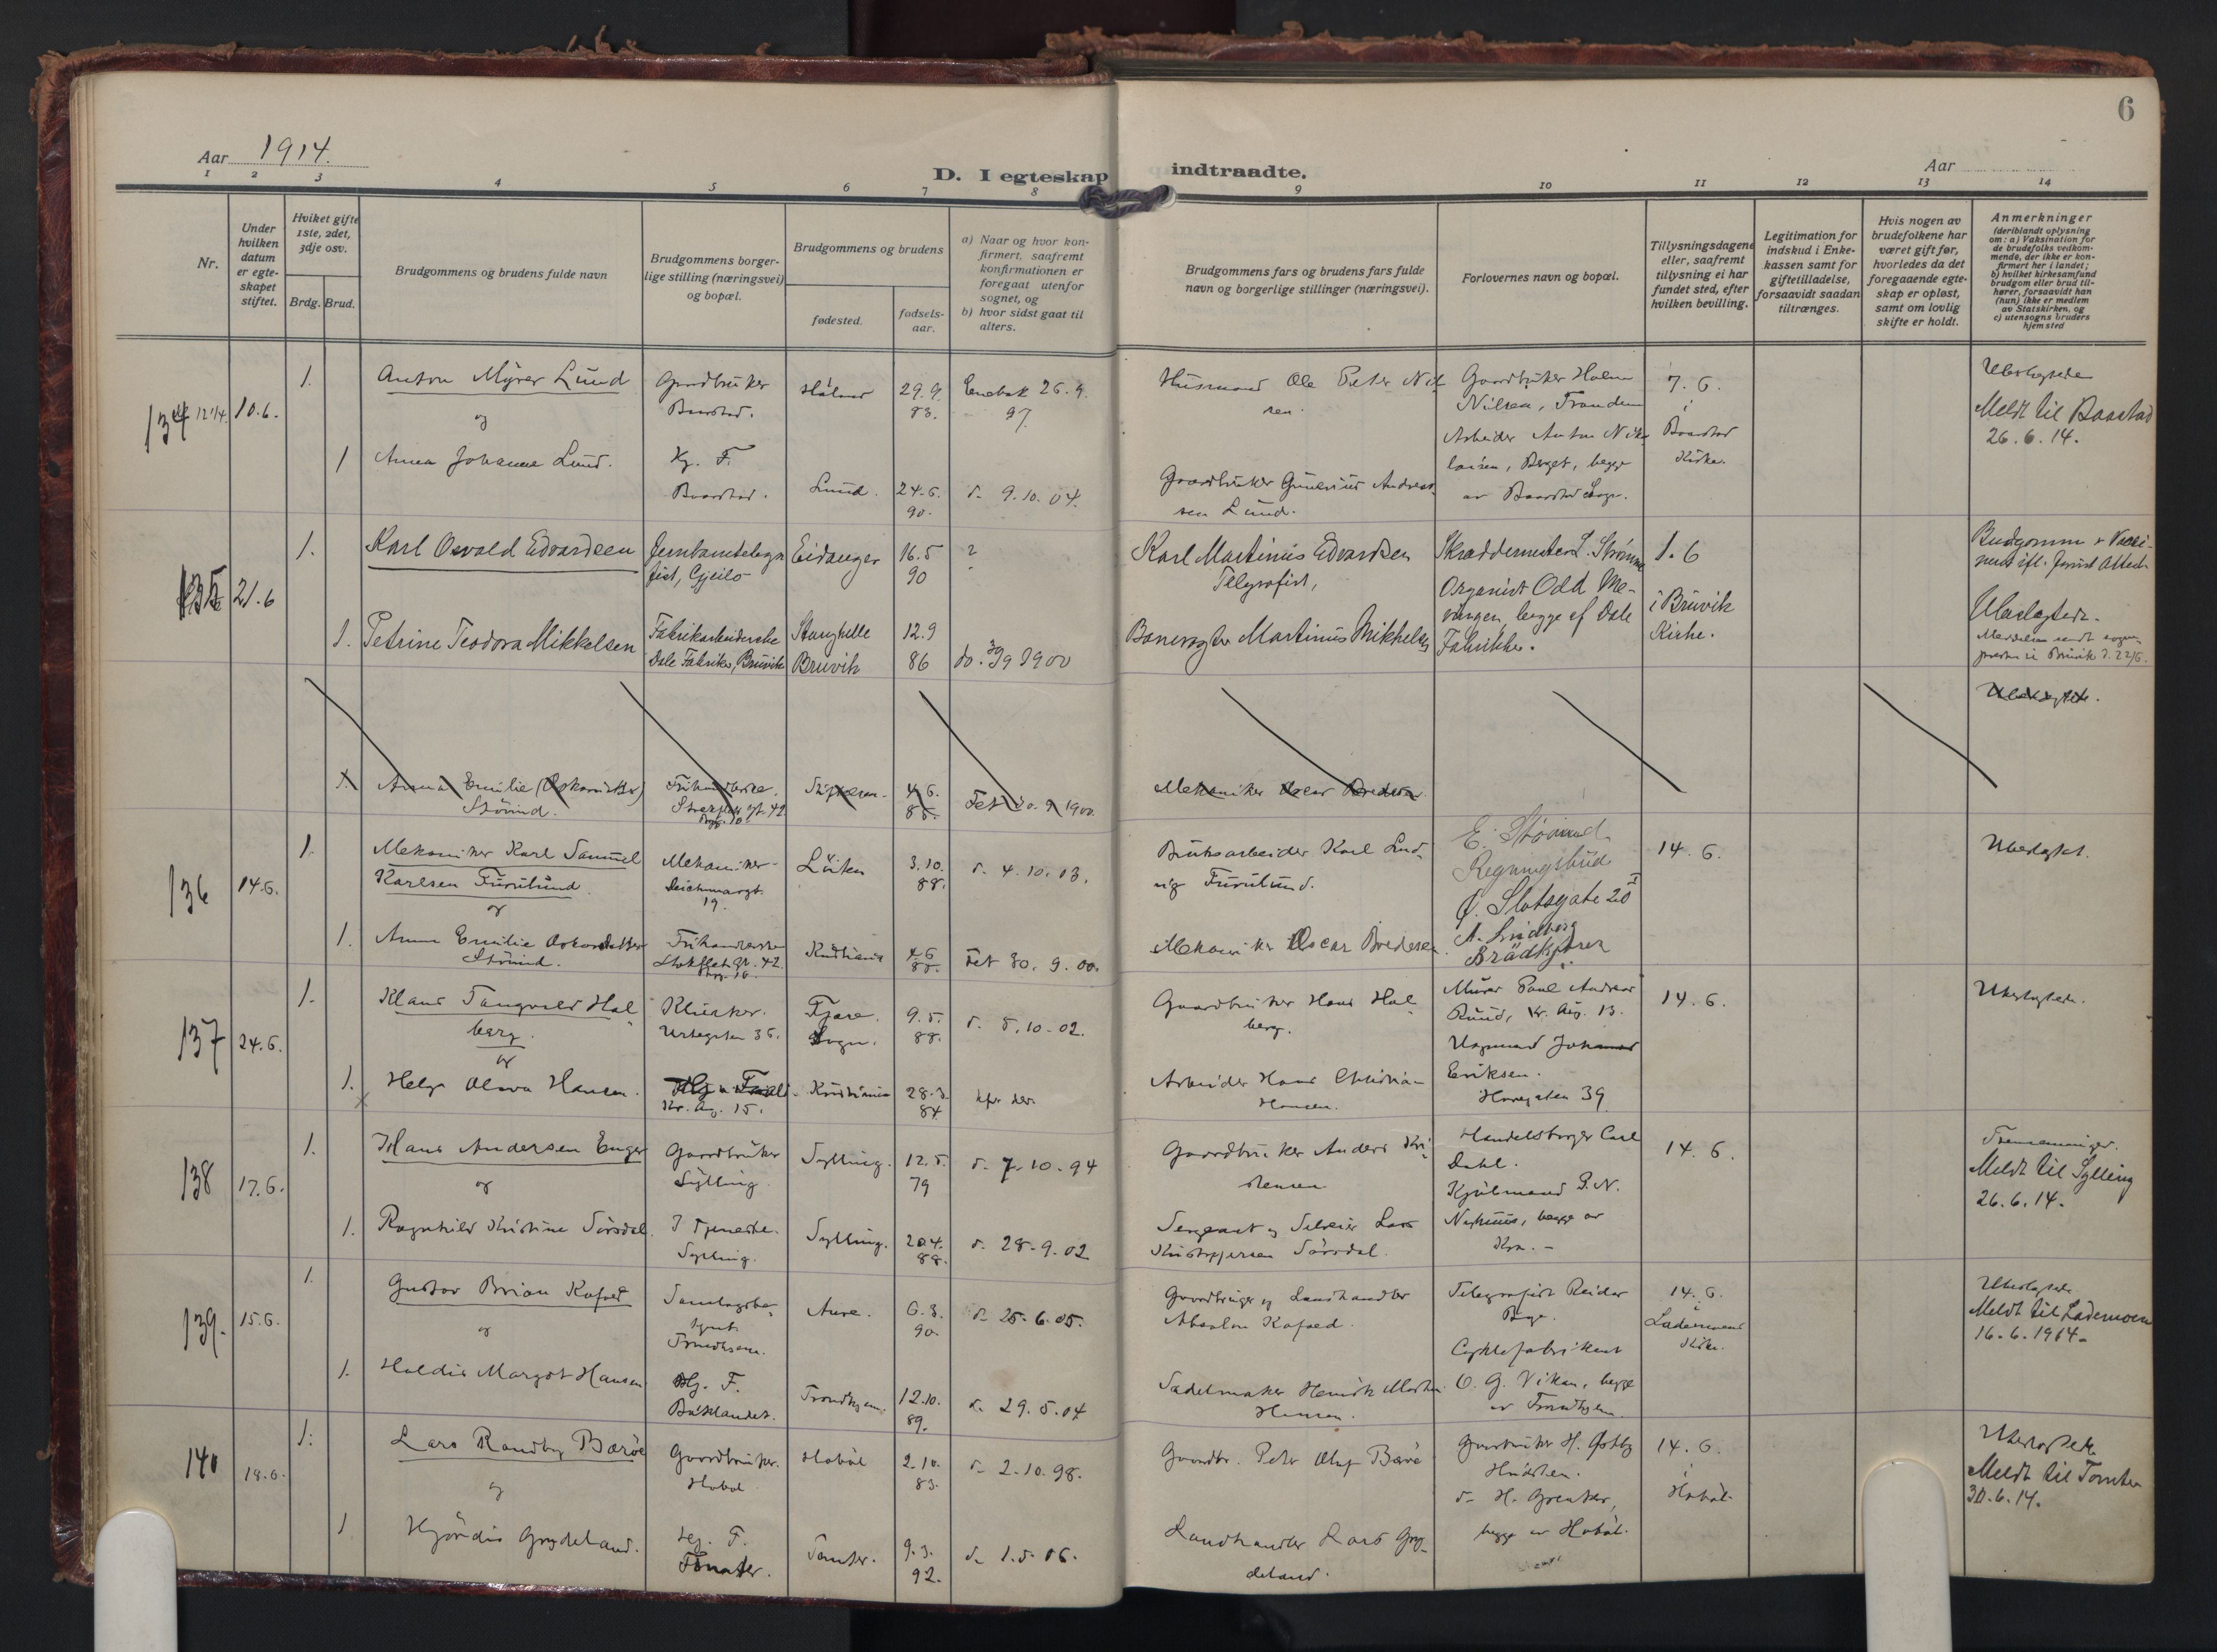 6
Aar 1914.
D. I egteskap indtraadte.
Aar
1 2 3 4 5 6 7 8 9 10 11 12 13 14
Nr.
Under
hvilken
datum
er egte-
skapet
stiftet.
Hvilket gifte
1ste, 2det,
3dje osv.
Brdg. Brud.
Brudgommens og brudens fulde navn
Brudgommens borger-
lige stilling (næringsvei)
og bopæl.
Brudgommens og brudens
fødested.
fødsels-
aar.
a) Naar og hvor kon-
firmert, saafremt
konfirmationen er
foregaat utenfor
sognet, og
b) hvor sidst gaat til
alters.
Brudgommens fars og brudens fars fulde
navn og borgerlige stillinger (næringsvei).
Forlovernes navn og bopæl.
Tillysningsdagene
eller, saafremt
tillysning ei har
fundet sted, efter
hvilken bevilling.
Legitimation for
indskud i Enke-
kassen samt for
giftetilladelse,
forsaavidt saadan
tiltrænges.
Hvis nogen av
brudefolkene har
været gift før,
hvorledes da det
foregaaende egte-
skap er opløst,
samt om lovlig
skifte er holdt.
Anmerkninger
(deriblandt oplysning
om: a) Vaksination for
de brudefolks vedkom-
mende, der ikke er kon-
firmert her i landet;
b) hvilket kirkesamfund
brudgom eller brud til-
hører, forsaavidt han
(hun) ikke er medlem
av Statskirken, og
c) utensogns bruders
hjemsted
134
10.6.
1.
Anton Myrer Lund
og
Gaardbruker
Baastad.
29.9.
83.
Enebak 26.9.
97.
Husmand Ole Peter
Gaardbruker
Nilsen,
Arbeider Anton
begge
av Baastad Sogn.
7.6.
i
Baastad
Kirke.
Ubeslegtede
Meldt til Baastad
26.6.14.
1
Anna Johanne Lund.
Hj. F.
Baastad.
Lund.
24.6.
90.
d. 9.10.04.
Gaardbruker Gunerius Andreas-
sen Lund.
135
21.6
1.
Karl Osvald Edvardsen
Jernbanetelegra
fist, Gjeilo
Eidanger
16.5
90
?
Karl Martinius Edvardsen
Telegrafist,
Skræddermester L. Strømme
Organist Odd Me-
vangen, begge af Dale
Fabrikker.
1.6
i Bruvik
Kirke.
Ubeslegtede.
1.
Petrine Teodora Mikkelsen
Fabrikarbeiderske
Dale Fabriker, Bruvik
Stanghelle
Bruvik
12.9
86
do. 30/9 1900
Banevogter Martinius Mikkelsen
Ubeslegtede.
1.
Anna Emilie (Oskarsdatter)
Strømd.
4.6.
88.
Fet 30.9.1900.
Mekaniker Oscar Bredesen
136
14.6.
1.
Mekaniker Karl Samuel
Karlsen Furulund
og
Mekaniker
Deichmansgt.
19.
Løiten
3.10.
88.
d. 4.10.03.
Bruksarbeider Karl Lud-
vig Furulund.
Regningsbud
Ø. Slotsgate 20
A. Lindberg
Brødkjører
14.6.
Ubeslegtet.
1.
Anna Emilie Oskarsdatter
Kristiania
4.6
88.
Fet 30.9.00.
Mekaniker Oscar Bredesen
137
24.6.
1.
Klaus Tangvald Hol
berg.
og
Urtegaten 36.
Fjære
Sogn.
9.5.
88.
d. 5.10.02.
Gaardbruker Hans Hol-
berg.
Murer Paul Andreas
Ruud, Kr. Aug. 13.
Eriksen.
39
14.6.
Ubeslegtede.
1.
Helga Olava Hansen.
Kr. Aug. 15.
Kristiania
28.3.
84
Arbeider Hans Christian
Hansen.
138
17.6.
1.
Hans Andersen Enger
og
Gaardbruker
Sylling
Sylling.
12.5.
79
d. 7.10.94
Gaardbruker Anders Kri-
stensen
Handelsborger Carl
Dahl.
Kjølmand P. N.
Nyhuus, begge av
Kra.
14.6.
Tremenninger.
Meldt til Sylling
26.6.14.
1.
Ragnhild Kristine Sørsdal.
I Tjeneste.
Sylling.
Sylling.
20.4.
88.
d. 28.9.02
Sergeant og Selveier Lars
Kristoffersen Sørsdal.
139.
15.6.
1.
Gustav Brian Kofoed
og
Trondhjem.
Aure.
6.3.
90.
d. 25.6.05.
Gaardbruger og Landhandler
Absalon Kofoed.
Telegrafist Reidar
Cyklefabrikant
O. G. Vikan, begge
av Trondhjem.
14.6.
i
Lademoens
Kirke.
Ubeslegtede
Meldt til Lademoen
16.6.1914.
1.
Haldis Margot Hansen
Hj. F.
Baklandet.
Trondhjem.
12.10.
89.
d. 29.5.04
Sadelmaker Henrik Martin
Hansen.
140
18.6.
1.
Lars Randby Barøe
og
Gaardbruker.
Hobøl
Hobøl
2.10.
83.
d. 2.10.98.
Gaardbr. Peter Oluf Barøe
Gaardbruker H. Østby
begge av Hobøl.
14.6.
i
Hobøl.
Ubeslegtede
Meldt til Tomter
30.6.14.
1
Hjørdis Grydeland.
Hj. F.
Tomter.
Tomter.
9.3.
92.
d. 1.5.06.
Landhandler Lars Gry-
deland.